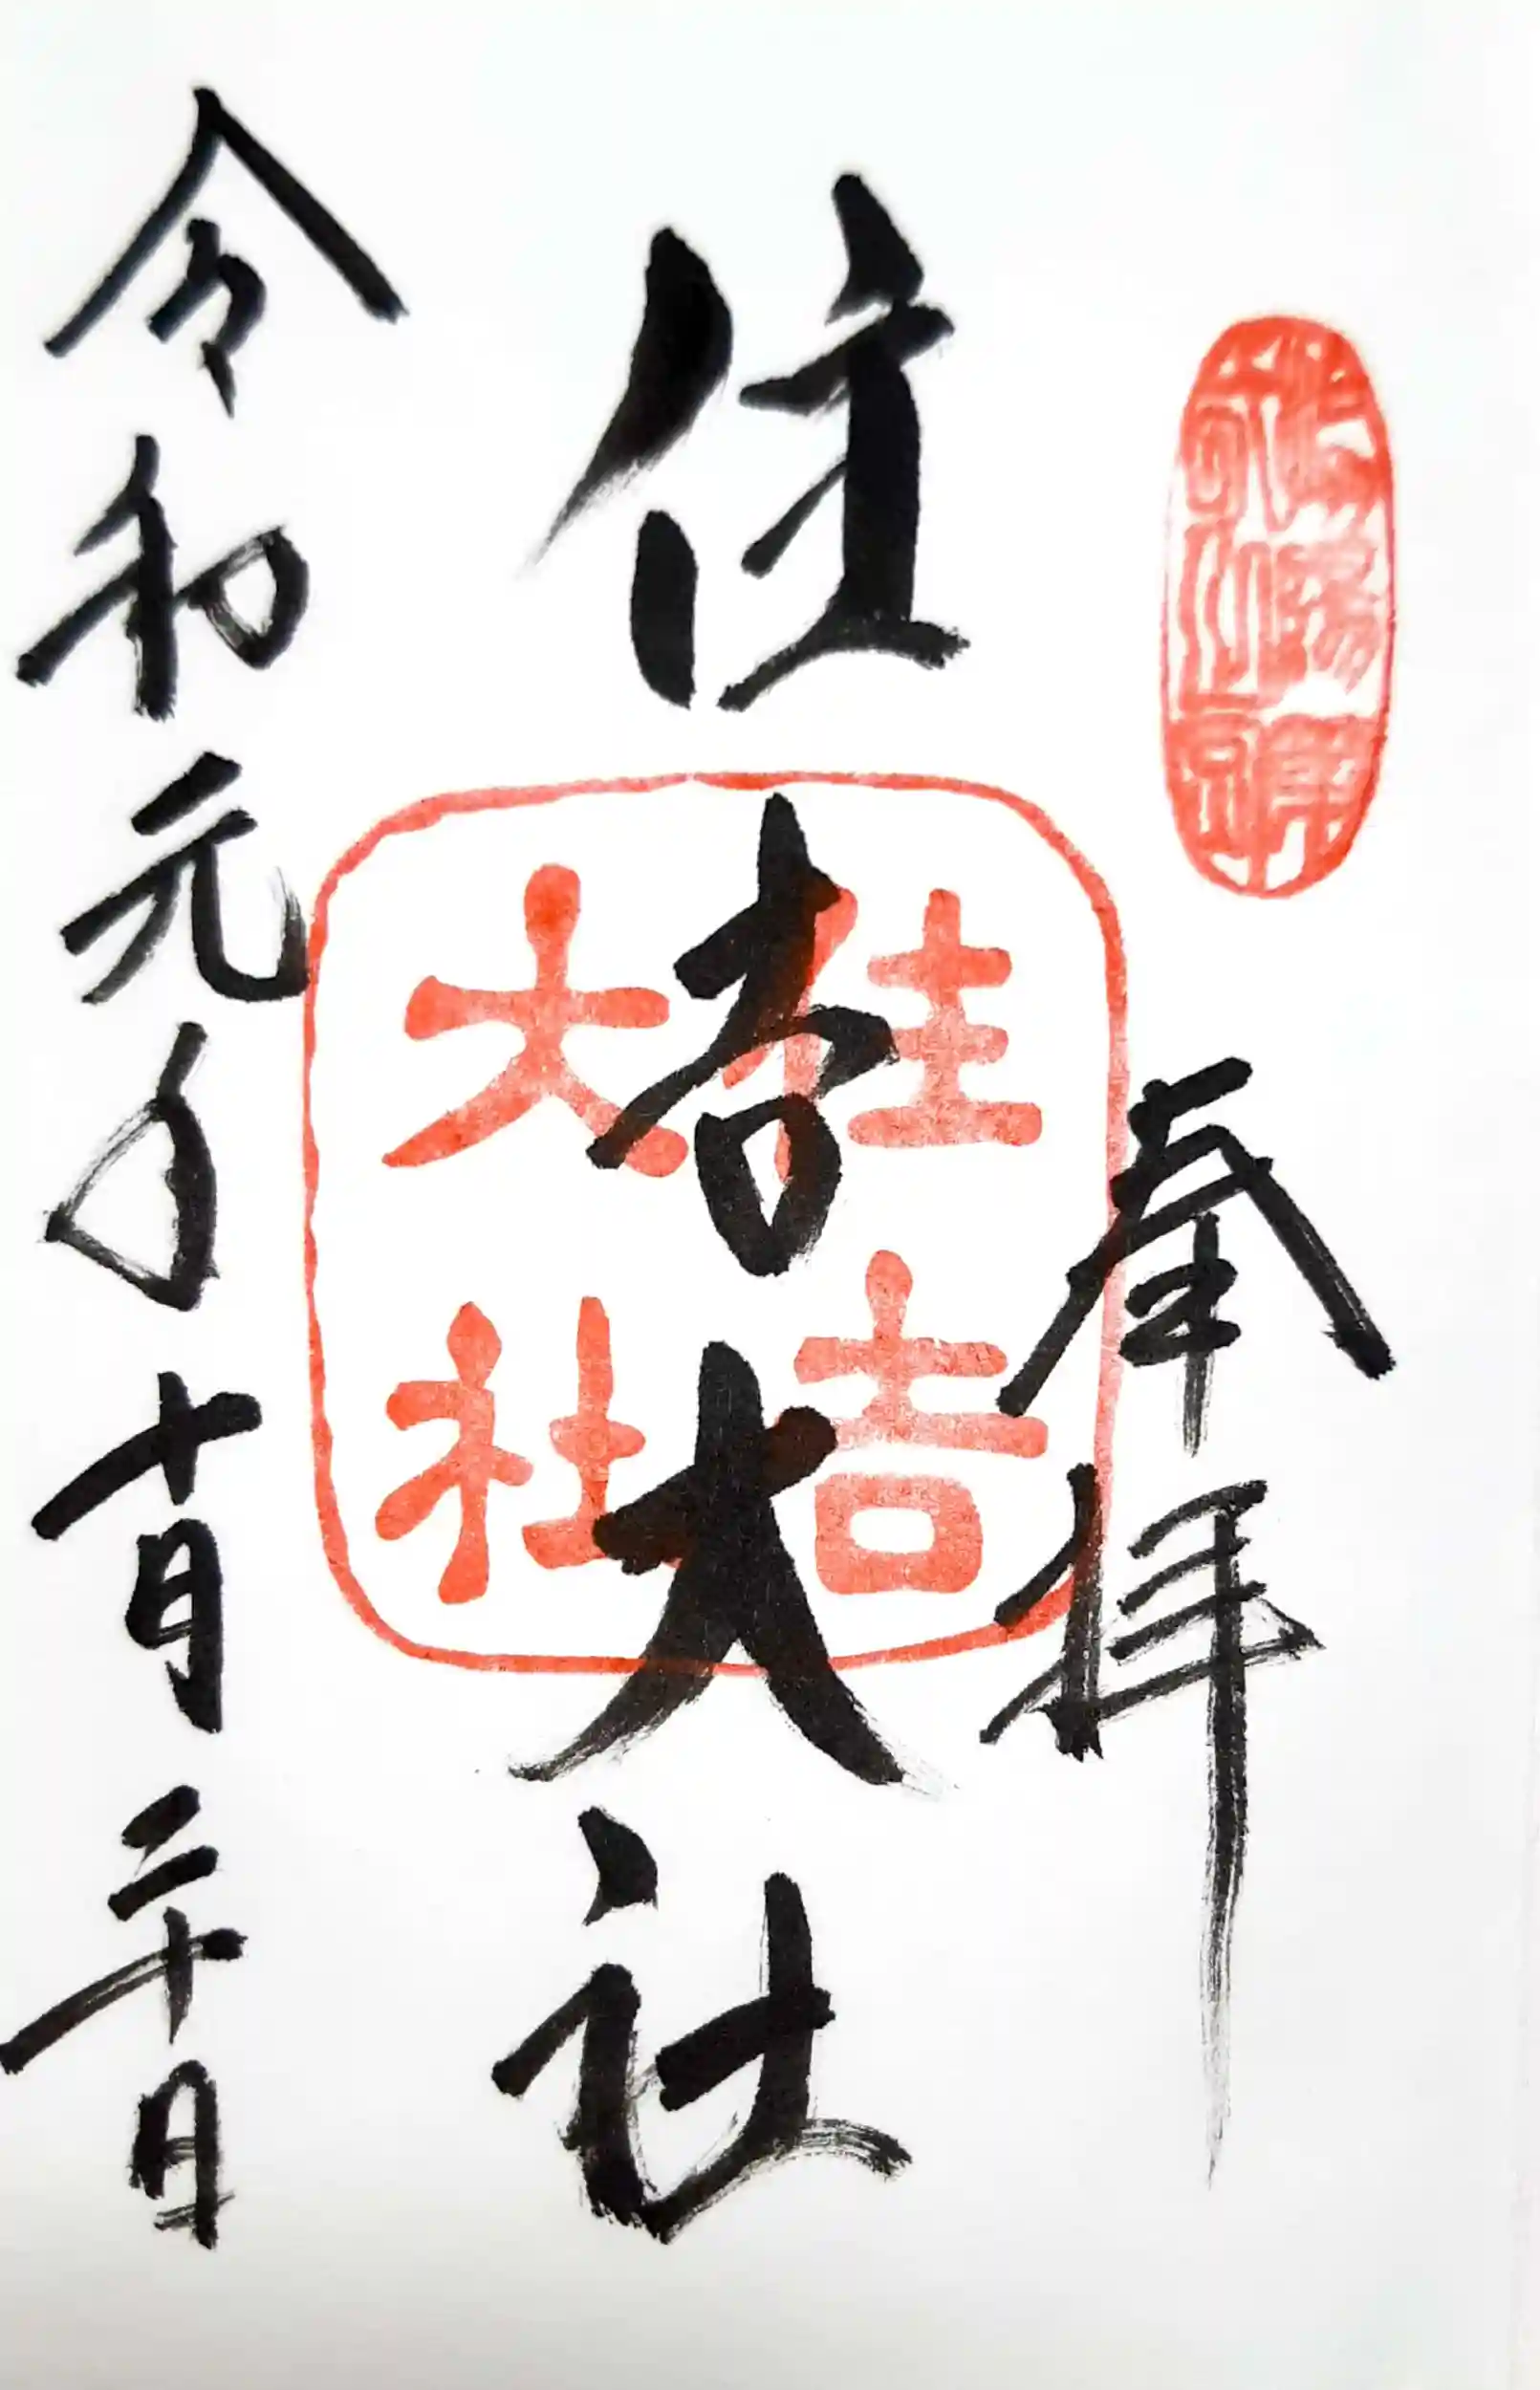 奉拝
住吉大社
住吉
大社
令和元年十月二十日